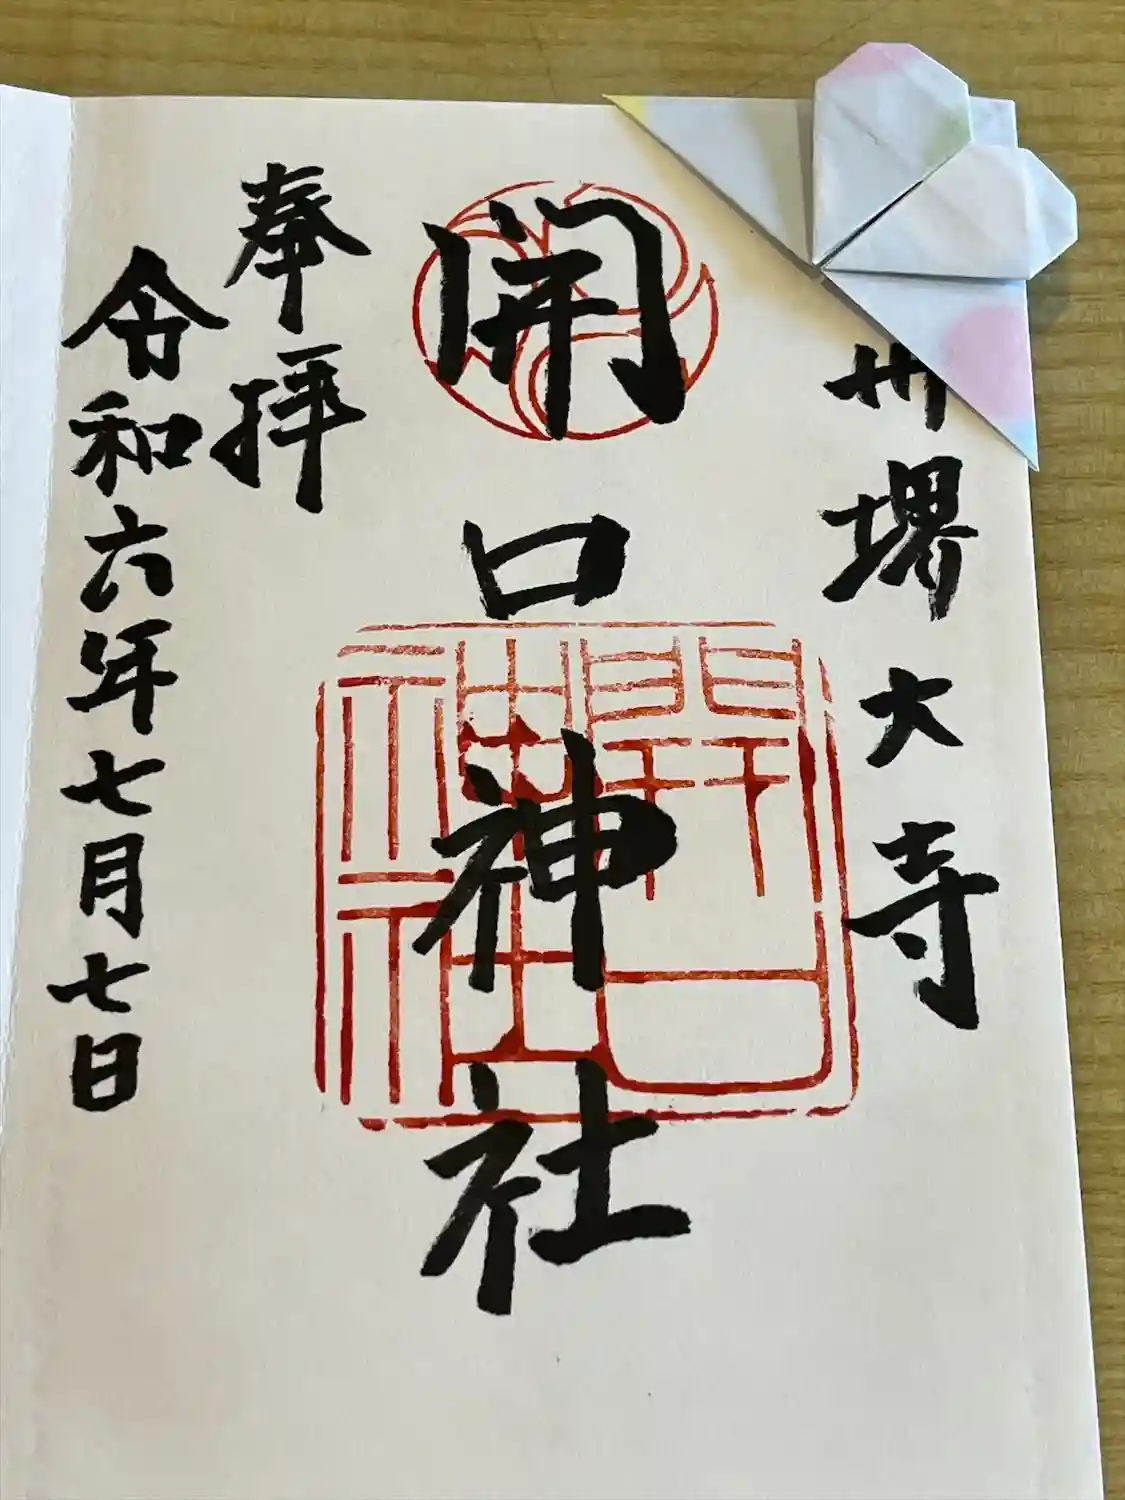 州堺大寺
開口神社
開口
神社
奉拝
令和六年七月七日